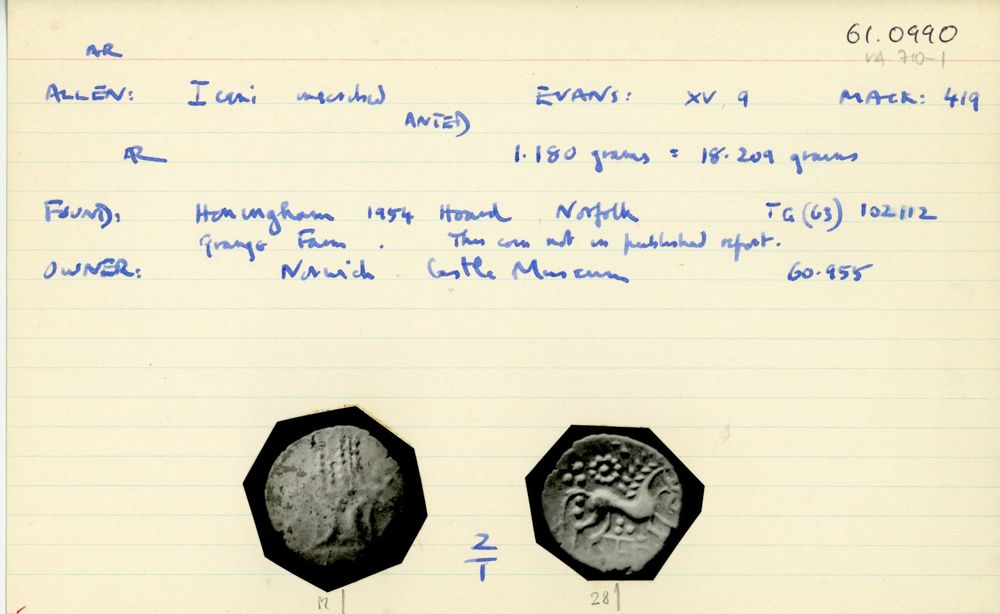 61.0990
AR
VA 710-1
ALLEN: Iceni inscribed EVANS: XV. 9 MACK: 419
ANTED
AR 1.180 grams = 18.209 grains
FOUND: Honingham 1954 Hoard Norfolk TG (63) 102112
Grange Farm. This coin not in published report.
OWNER: Norwich Castle Museum 60.955
2
1
28